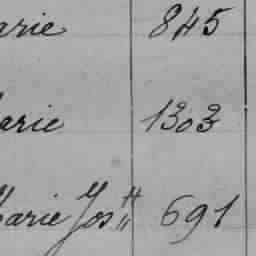 arie 845
arie 1303
Marie Jos 691